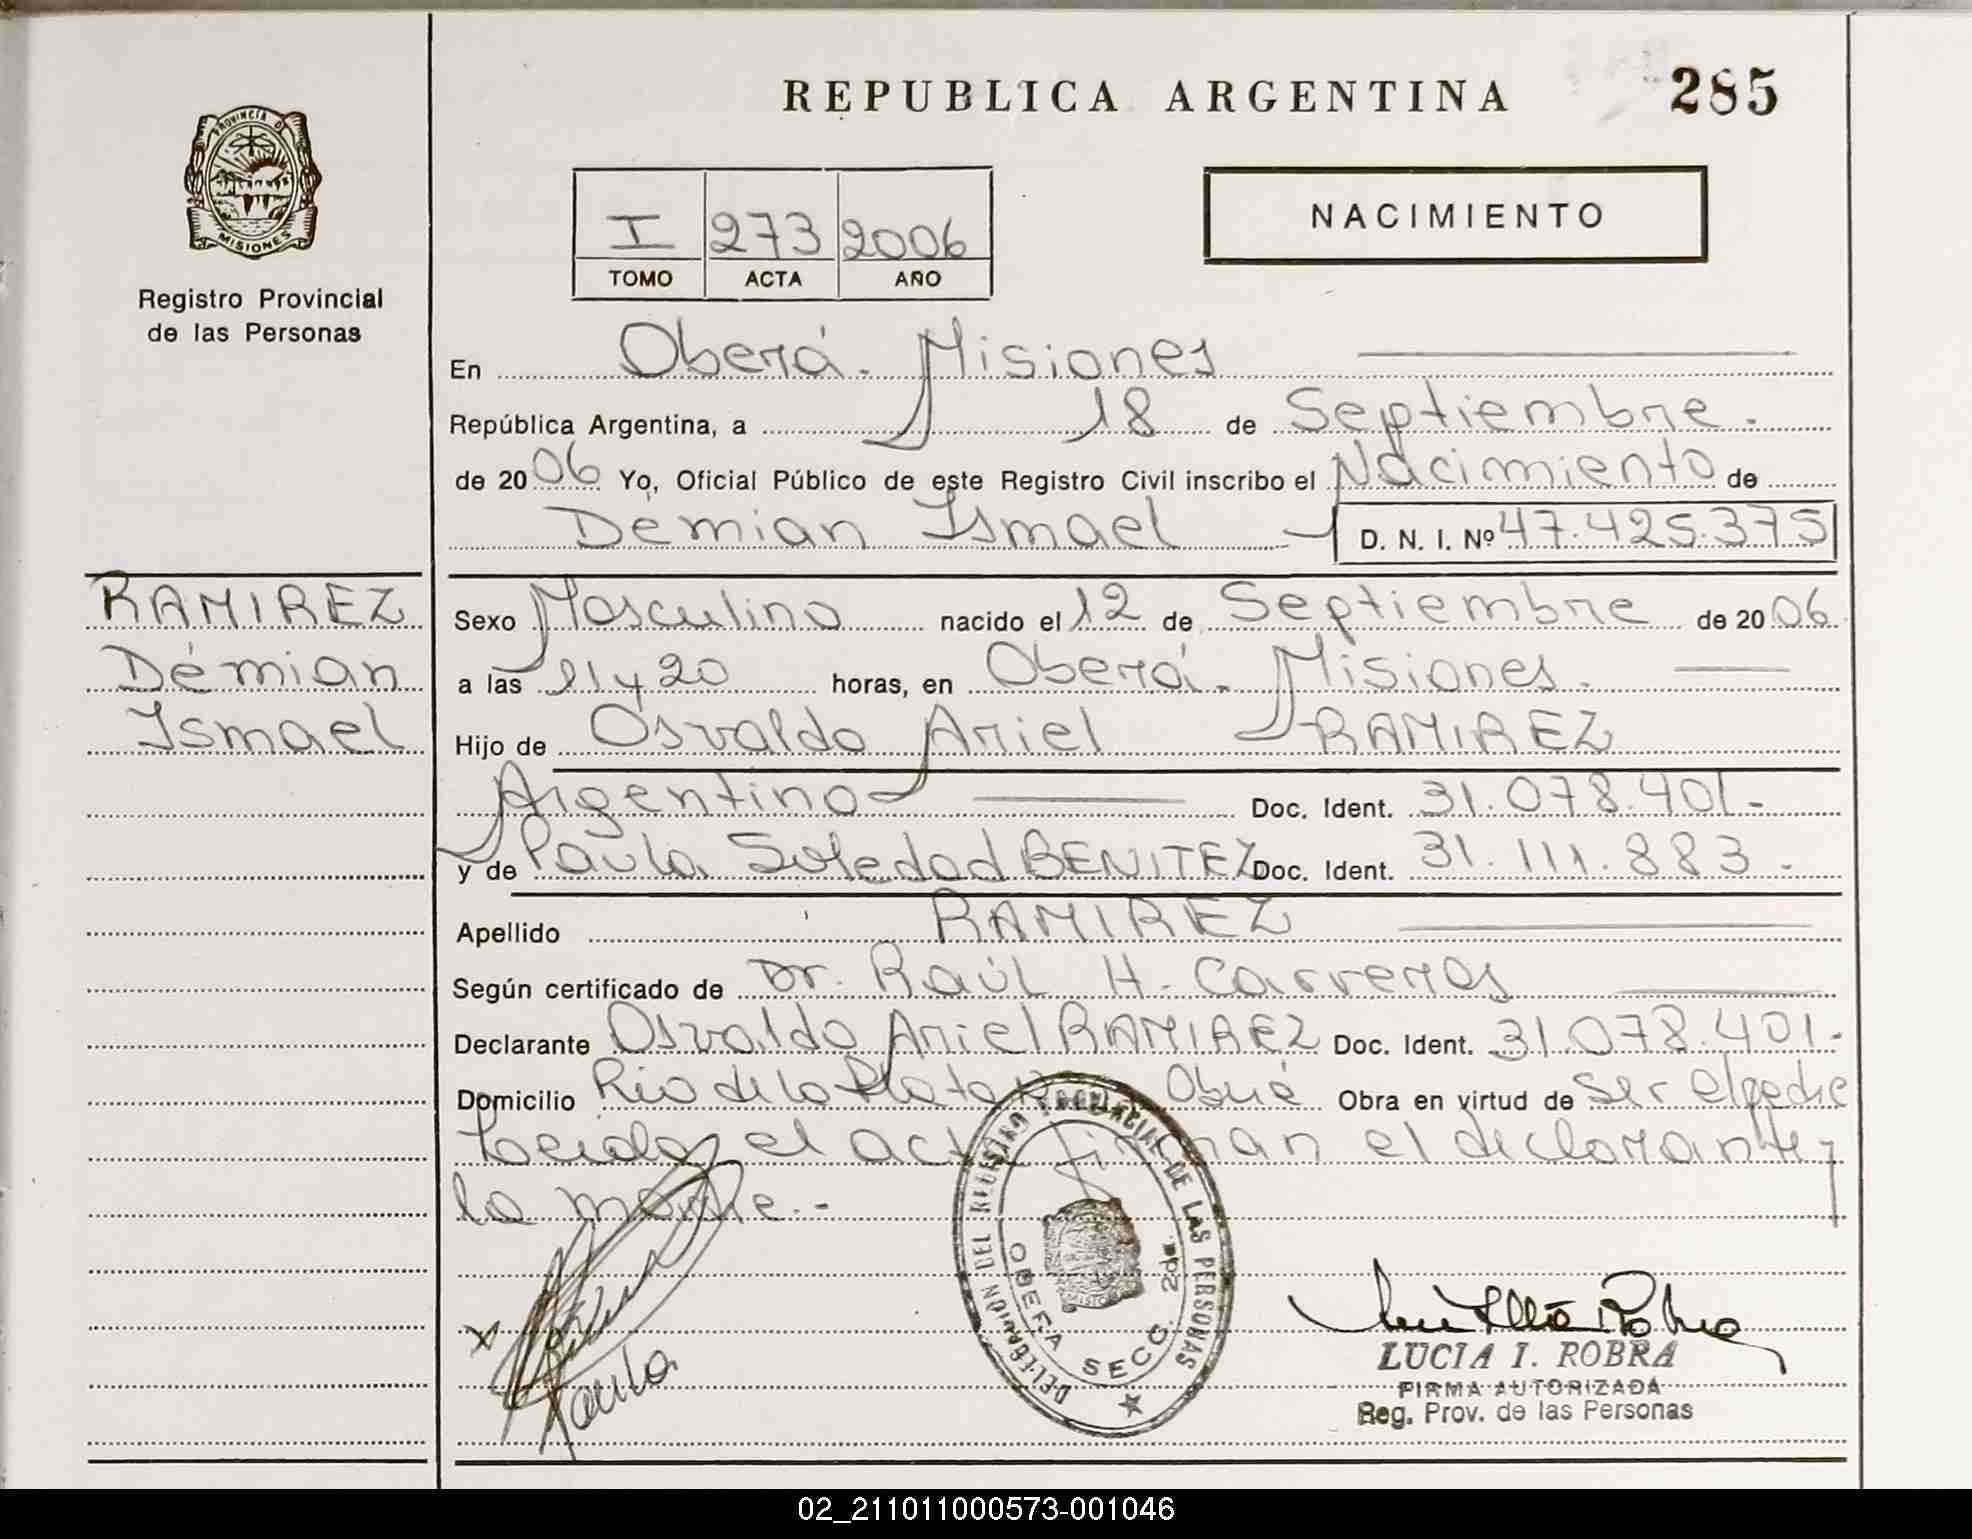 REPUBLICA ARGENTINA
285
PROVINCIA DE
MISIONES
Registro Provincial
de las Personas
I 273 2006
TOMO ACTA AÑO
NACIMIENTO
En Oberá. Misiones
República Argentina, a 18 de Septiembre.
de 2006 Yo, Oficial Público de este Registro Civil inscribo el Nacimiento de
Demian Ismael D. N. I. Nº 47.425.375
RAMIREZ
Demian
Ismael
Sexo Masculino nacido el 12 de Septiembre de 2006
a las 11 y 20 horas, en Oberá. Misiones.
Hijo de Osvaldo Ariel RAMIREZ
Argentino Doc. Ident. 31.078.401.-
y de Paula Soledad BENITEZ Doc. Ident. 31.111.883.-
Apellido RAMIREZ
Según certificado de Dr. Raúl H. Carreras
Declarante Osvaldo Ariel RAMIREZ Doc. Ident. 31.078.401.-
Domicilio Rio de la Plata Oberá Obra en virtud de ser el padre
Leida el acta firman el declarante y
la madre.-
DELEGACIÓN DEL REGISTRO PROVINCIAL DE LAS PERSONAS
OBERA SECC. 2da.
Paula
LUCIA I. ROBRA
FIRMA AUTORIZADA
Reg. Prov. de las Personas
02_211011000573-001046